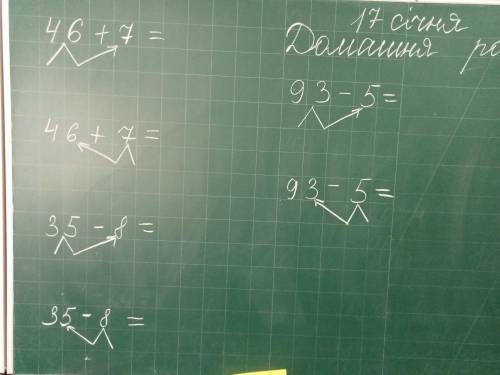 17 січня
Домашня
46 + 7 =
46 + 7 =
35 - 8 =
35 - 8 =
93 - 5 =
93 - 5 =